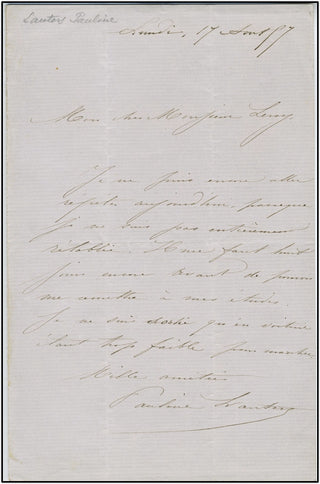 Lauters Pauline
Lundi, 17 Aout 57
Mon cher Monsieur Leroy,
Je ne puis encore aller
répéter aujourd'hui, parceque
je ne suis pas entièrement
rétablie. Il me faut huit
jours encore avant de pouvoir
me remettre à mes études.
Je ne suis sortie qu'en voiture
étant trop faible pour marcher.
Mille amitiés
Pauline Lauters